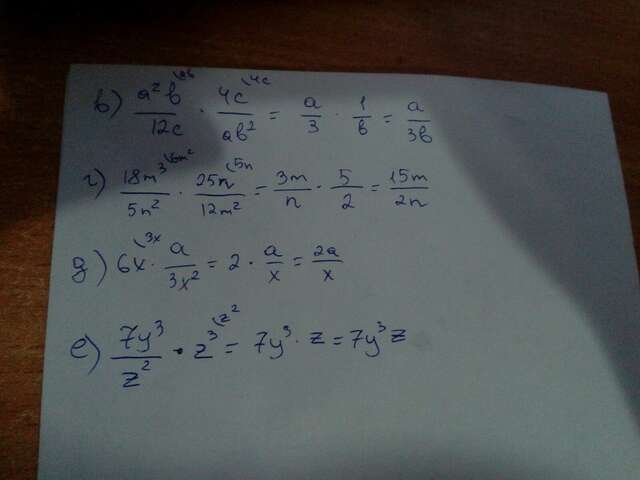 в) a²b\ab/12c · 4c\4c/ab² = a/3 · 1/b = a/3b
г) 18m³\6m²/5n² · 25n\5n/12m² = 3m/n · 5/2 = 15m/2n
д) 6x\3x · a/3x² = 2 · a/x = 2a/x
е) 7y³/z² · z³\z² = 7y³ · z = 7y³z